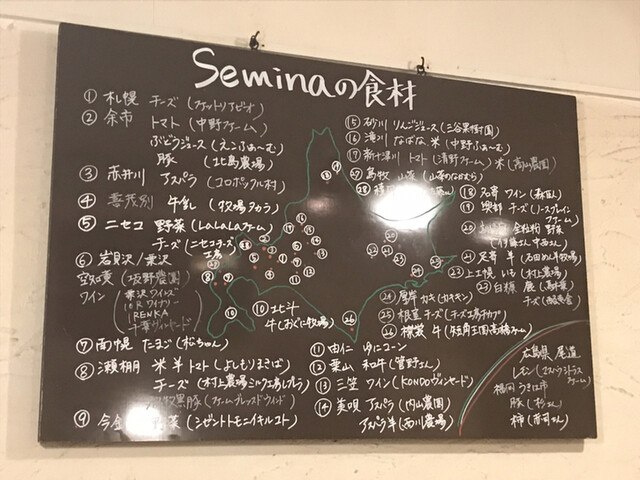 Seminaの食材
① 札幌 チーズ (ファットリアビオ)
② 余市 トマト (中野ファーム)
ぶどうジュース (えこふぁーむ)
豚 (北島農場)
③ 赤井川 アスパラ (コロポックル村)
④ 喜茂別 牛乳 (牧場タカラ)
⑤ ニセコ 野菜 (LaLaLaファーム)
チーズ (ニセコチーズ工房)
⑥ 岩見沢/栗沢
(坂野農園)
ワイン (栗沢ワインズ
10Rワイナリー
RENKA
千葉ヴィンヤード)
⑦ 南幌 たまご (松ちゃん)
⑧ 瀬棚 米 羊 トマト (よしもりまきば)
チーズ (村上農場ミルク工房レプレラ)
黒豚 (ファームブレッスドウインド)
⑨ 今金 菜 (シゼントトモニイキルコト)
⑩ 北斗
牛 (おぐに牧場)
⑪ 由仁 ゆにコーン
⑫ 栗山 和牛 (菅野さん)
⑬ 三笠 ワイン (KONDOヴィンヤード)
⑭ 美唄 アスパラ (内山農園)
アスパラ羊 (西川農場)
⑮ 砂川 りんごジュース (三谷果樹園)
⑯ 滝川 ななな米 (中野ふぁーむ)
⑰ 新十津川 トマト (清野ファーム) 米 (高山農園)
㉗ 島牧 山菜 (山菜のなかむら)
㉘
⑱ 名寄 ワイン (森臥)
⑲ 興部 チーズ (ノースプレインファーム)
⑳ 全粒粉 野菜
(伊藤さん 中西さん)
㉑ 足寄 羊 (石田めん羊牧場)
㉒ 上士幌 いも (村上農場)
㉓ 白糠 鹿
チーズ
㉔ 厚岸 カキ (カキキン)
㉕ 根室 チーズ (チーズ工房チカプ)
㉖ 様似 牛 (短角王国高橋ファーム)
広島県 尾道
レモン (シトラスファーム)
福岡 うきは市
豚 (杉さん)
柿